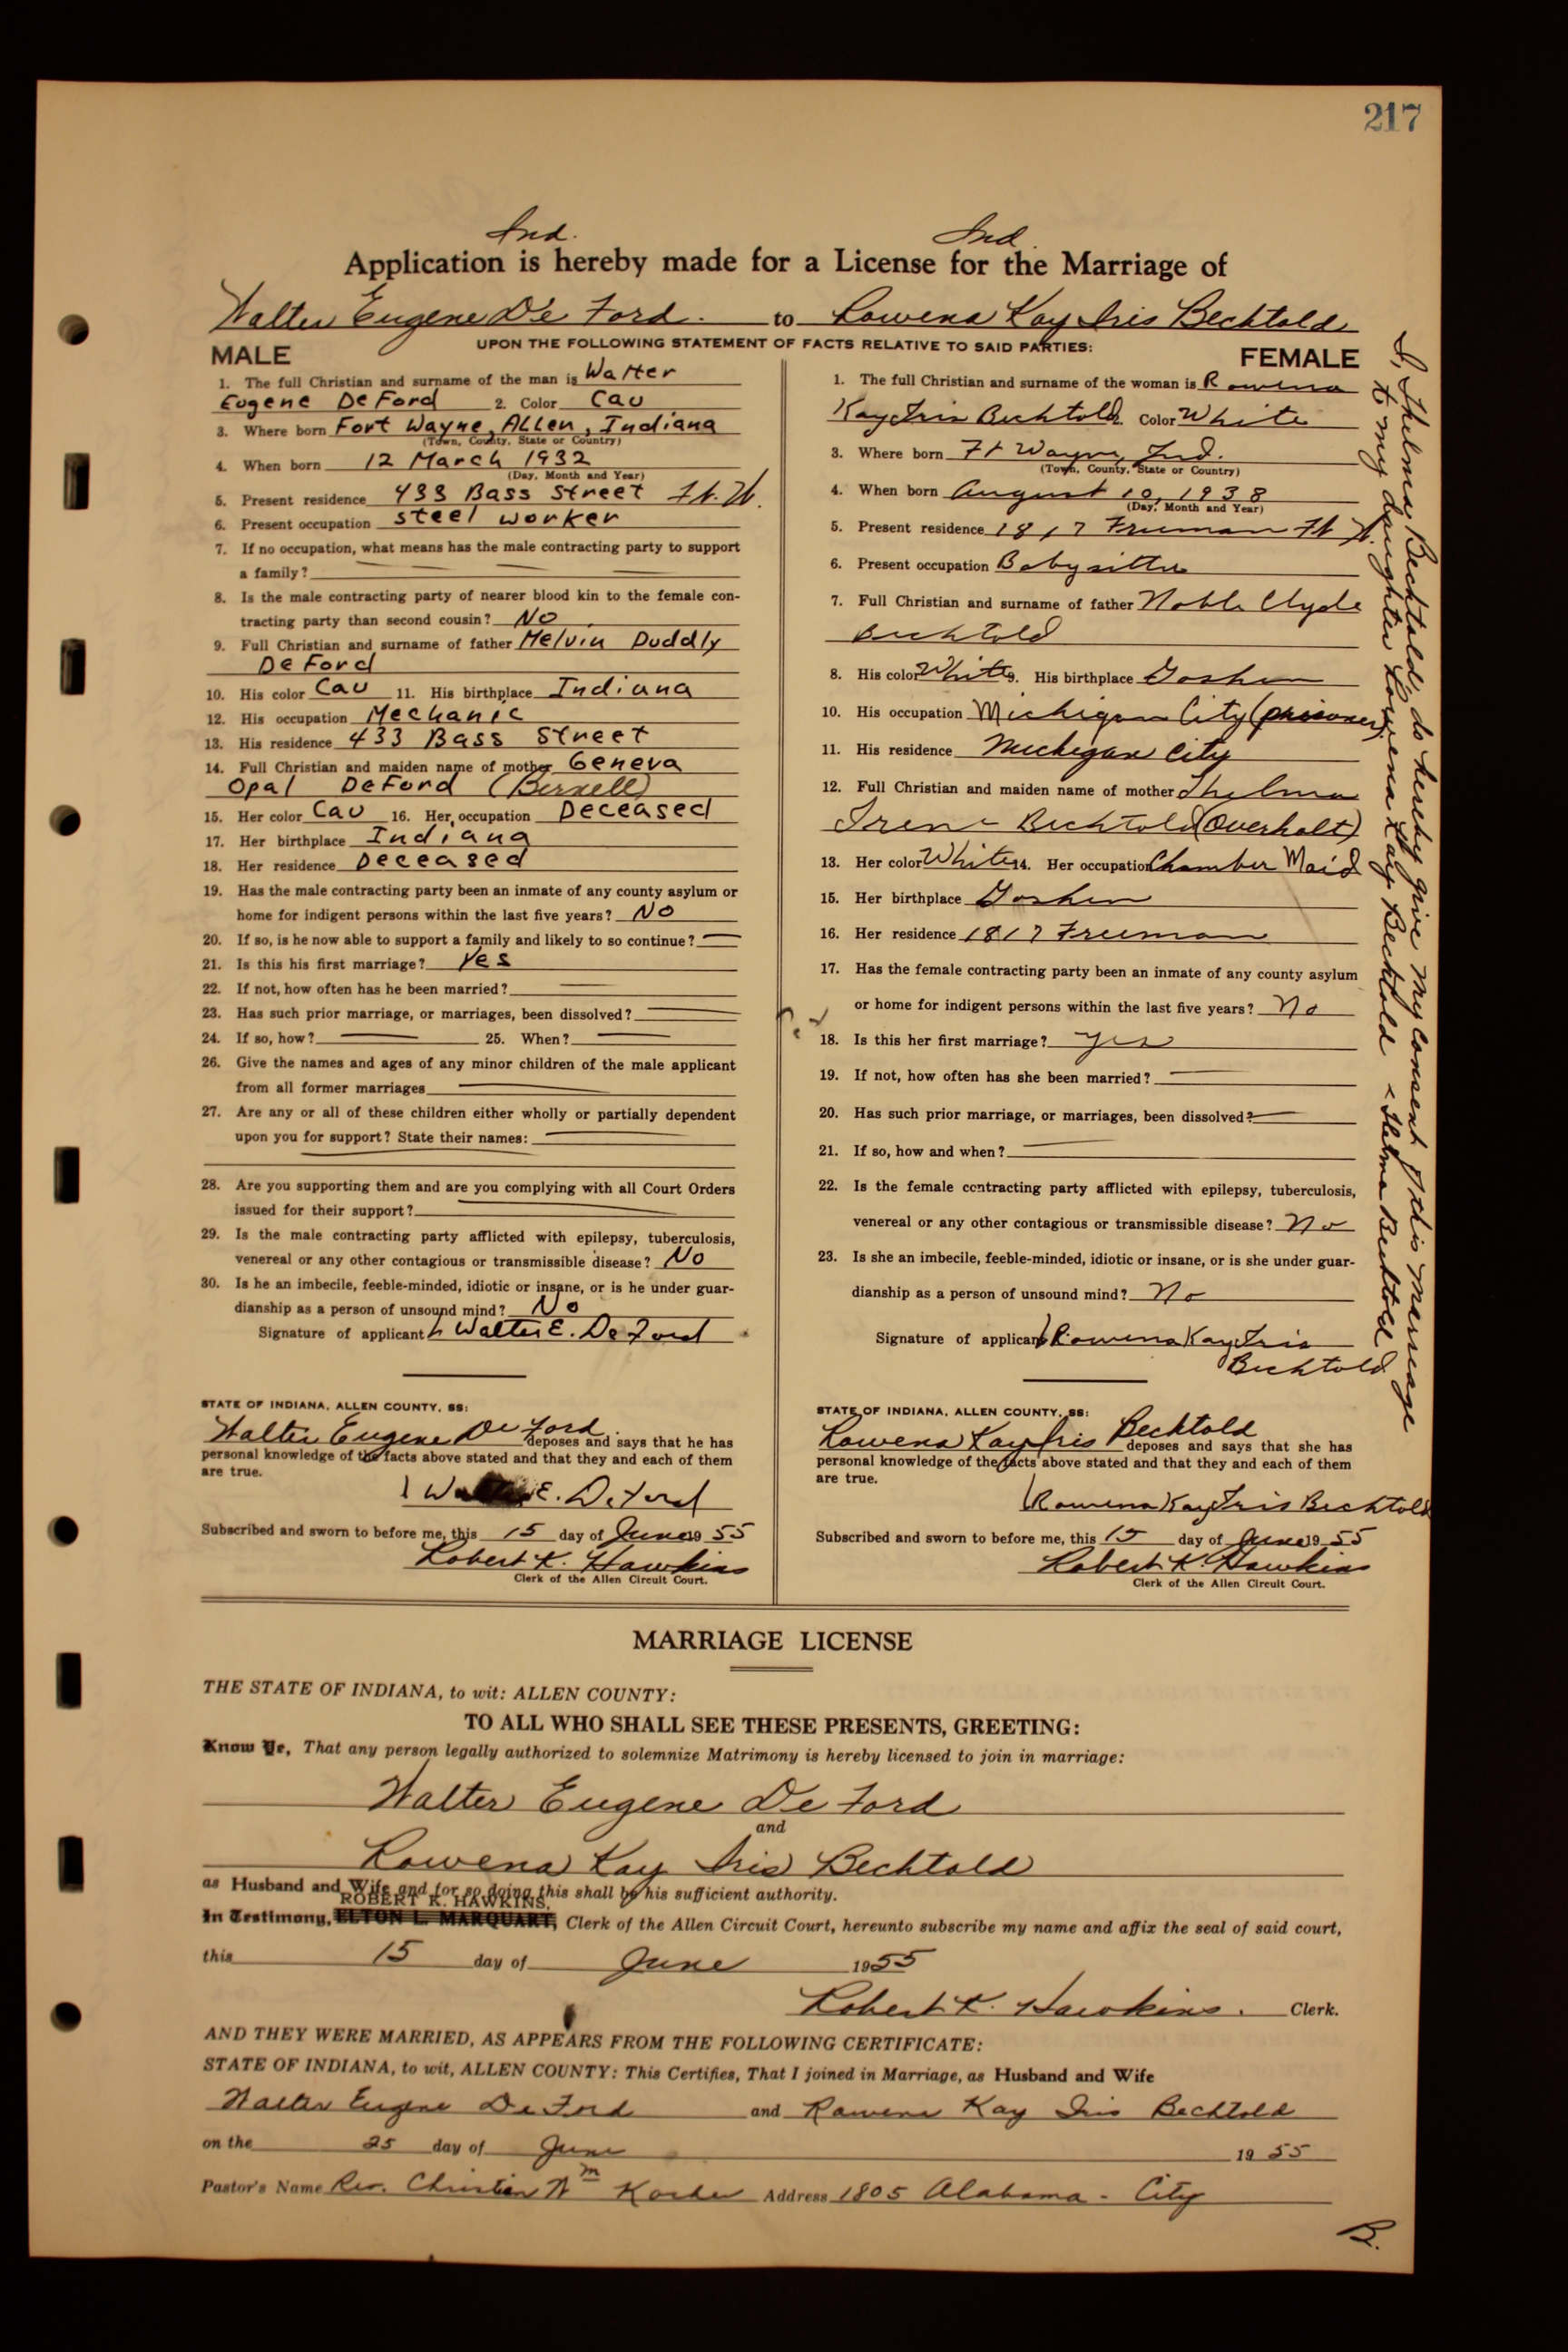 217
Ind. Ind.
Application is hereby made for a License for the Marriage of
Walter Eugene De Ford. to Rowena Kay Iris Bechtold
UPON THE FOLLOWING STATEMENT OF FACTS RELATIVE TO SAID PARTIES:
MALE
1. The full Christian and surname of the man is Walter
Eugene DeFord 2. Color Cau
3. Where born Fort Wayne, Allen, Indiana
(Town, County, State or Country)
4. When born 12 March 1932
(Day, Month and Year)
5. Present residence 433 Bass Street Ft. W.
6. Present occupation steel worker
7. If no occupation, what means has the male contracting party to support
a family?
8. Is the male contracting party of nearer blood kin to the female con-
tracting party than second cousin? No
9. Full Christian and surname of father Melvin Duddly
DeFord
10. His color Cau 11. His birthplace Indiana
12. His occupation Mechanic
13. His residence 433 Bass Street
14. Full Christian and maiden name of mother Geneva
Opal DeFord
15. Her color Cau 16. Her occupation Deceased
17. Her birthplace Indiana
18. Her residence Deceased
19. Has the male contracting party been an inmate of any county asylum or
home for indigent persons within the last five years? No
20. If so, is he now able to support a family and likely to so continue? —
21. Is this his first marriage? Yes
22. If not, how often has he been married? —
23. Has such prior marriage, or marriages, been dissolved? —
24. If so, how? — 25. When? —
26. Give the names and ages of any minor children of the male applicant
from all former marriages —
27. Are any or all of these children either wholly or partially dependent
upon you for support? State their names: —
28. Are you supporting them and are you complying with all Court Orders
issued for their support? —
29. Is the male contracting party afflicted with epilepsy, tuberculosis,
venereal or any other contagious or transmissible disease? No
30. Is he an imbecile, feeble-minded, idiotic or insane, or is he under guar-
dianship as a person of unsound mind? No
Signature of applicant Walter E. DeFord
STATE OF INDIANA, ALLEN COUNTY, SS:
Walter Eugene De Ford deposes and says that he has
personal knowledge of the facts above stated and that they and each of them
are true.
Walter E. DeFord
Subscribed and sworn to before me, this 15 day of June 1955
Robert K. Hawkins
Clerk of the Allen Circuit Court.
FEMALE
1. The full Christian and surname of the woman is Rowena
Kay Iris Bechtold 2. Color White
3. Where born Ft Wayne, Ind.
(Town, County, State or Country)
4. When born August 10, 1938
(Day, Month and Year)
5. Present residence 1817 Freeman Ft W.
6. Present occupation Babysitter
7. Full Christian and surname of father Noble Clyde
Bechtold
8. His color White 9. His birthplace Goshen
10. His occupation Michigan City (prisoner)
11. His residence Michigan City
12. Full Christian and maiden name of mother Thelma
Irene Bechtold (Overholt)
13. Her color White 14. Her occupation Chamber Maid
15. Her birthplace Goshen
16. Her residence 1817 Freeman
17. Has the female contracting party been an inmate of any county asylum
or home for indigent persons within the last five years? No
18. Is this her first marriage? yes
19. If not, how often has she been married? —
20. Has such prior marriage, or marriages, been dissolved? —
21. If so, how and when? —
22. Is the female contracting party afflicted with epilepsy, tuberculosis,
venereal or any other contagious or transmissible disease? No
23. Is she an imbecile, feeble-minded, idiotic or insane, or is she under guar-
dianship as a person of unsound mind? No
Signature of applicant Rowena Kay Iris
Bechtold
STATE OF INDIANA, ALLEN COUNTY, SS:
Rowena Kay Iris Bechtold deposes and says that she has
personal knowledge of the facts above stated and that they and each of them
are true.
Rowena Kay Iris Bechtold
Subscribed and sworn to before me, this 15 day of June 1955
Robert K. Hawkins
Clerk of the Allen Circuit Court.
I, Thelma Bechtold, do hereby give my consent of this marriage
to my daughter Rowena Kay Bechtold Thelma Bechtold
MARRIAGE LICENSE
THE STATE OF INDIANA, to wit: ALLEN COUNTY:
TO ALL WHO SHALL SEE THESE PRESENTS, GREETING:
Know Ye, That any person legally authorized to solemnize Matrimony is hereby licensed to join in marriage:
Walter Eugene De Ford
and
Rowena Kay Iris Bechtold
as Husband and Wife and for so doing this shall be his sufficient authority.
ROBERT K. HAWKINS,
In Testimony, ELTON L. MARQUART, Clerk of the Allen Circuit Court, hereunto subscribe my name and affix the seal of said court,
this 15 day of June 1955
Robert K. Hawkins. Clerk.
AND THEY WERE MARRIED, AS APPEARS FROM THE FOLLOWING CERTIFICATE:
STATE OF INDIANA, to wit, ALLEN COUNTY: This Certifies, That I joined in Marriage, as Husband and Wife
Walter Eugene DeFord and Rowena Kay Iris Bechtold
on the 25 day of June 1955
Pastor's Name Rev. Christian Wm Address 1805 Alabama - City
B.